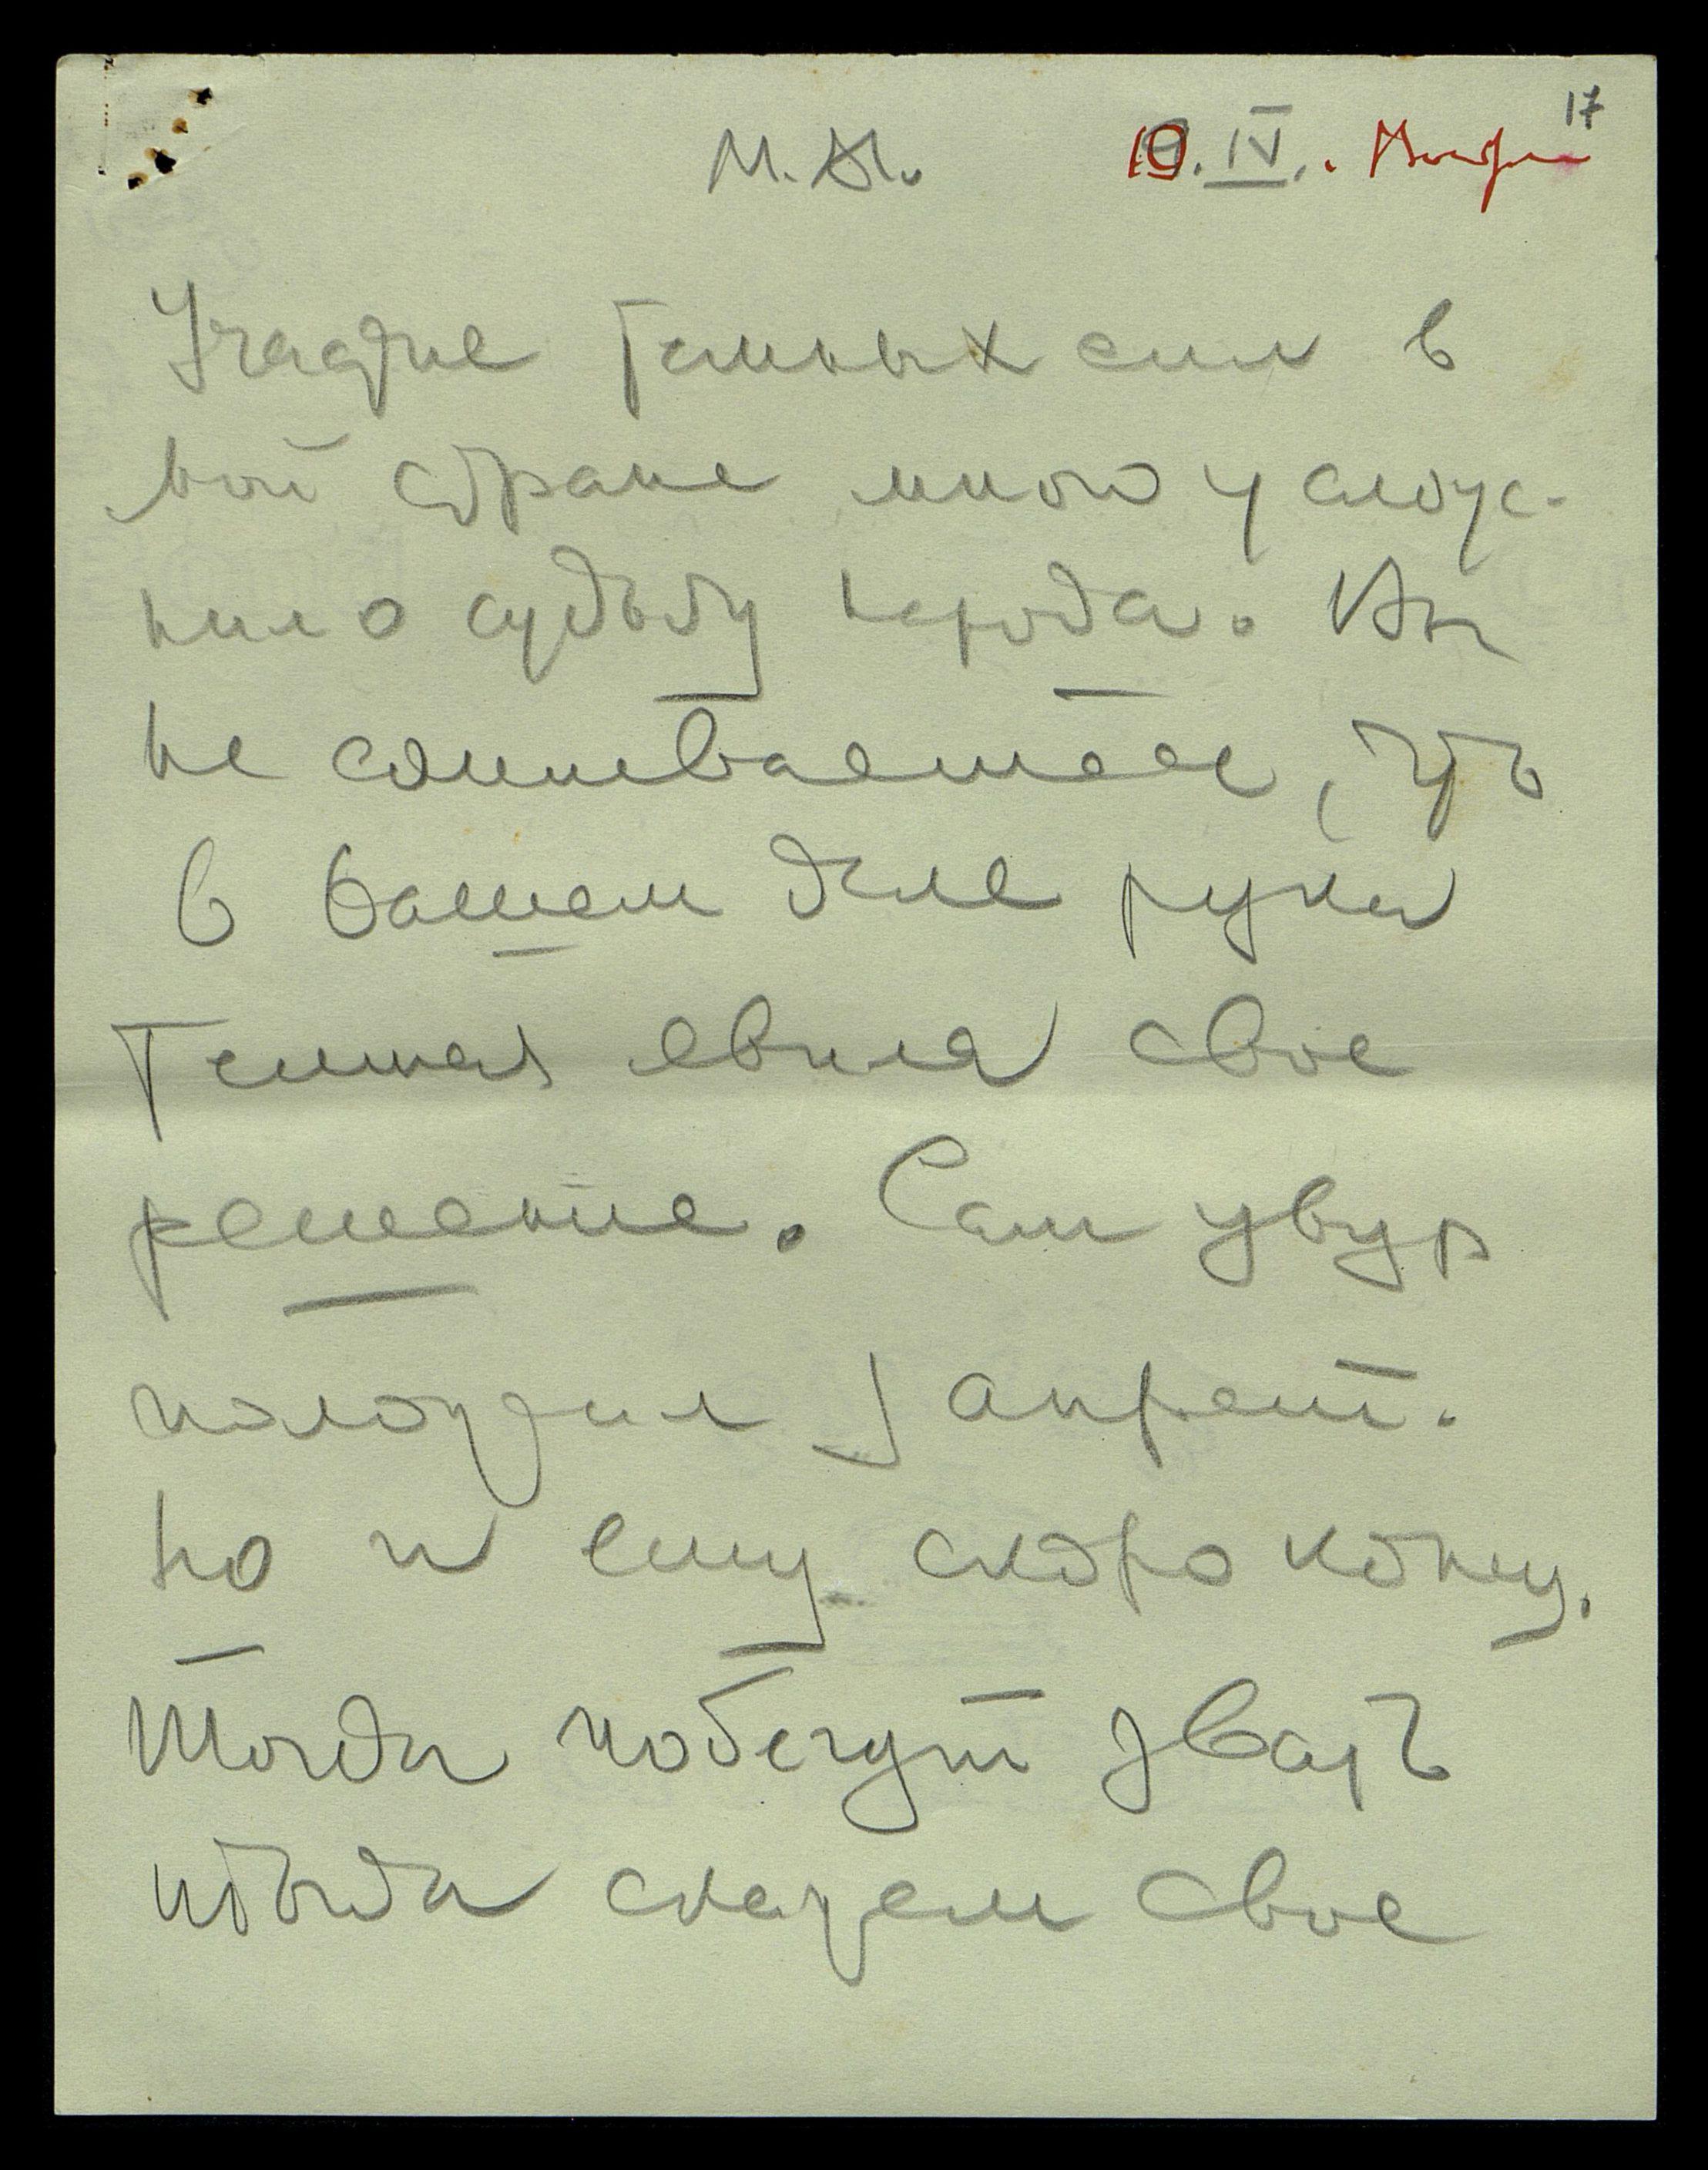 17
М. 10. IV.
Участие Темных сил в
вой стране много услож-
нило судьбу народа. Вы
не сомневаетесь, что
в вашем деле рука
Темная явила свое
решение. Сам увур
положил Запрет.
но и ему скоро конец.
Тогда побегут звать
тогда скажем свое